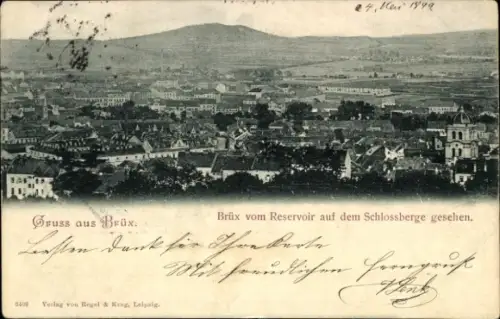 24. Mai 1899
Gruss aus Brüx.
Brüx vom Reservoir auf dem Schlossberge gesehen.
Besten Dank für Ihre Karte
Mit freundlichen
6402 Verlag von Regel & Krug, Leipzig.